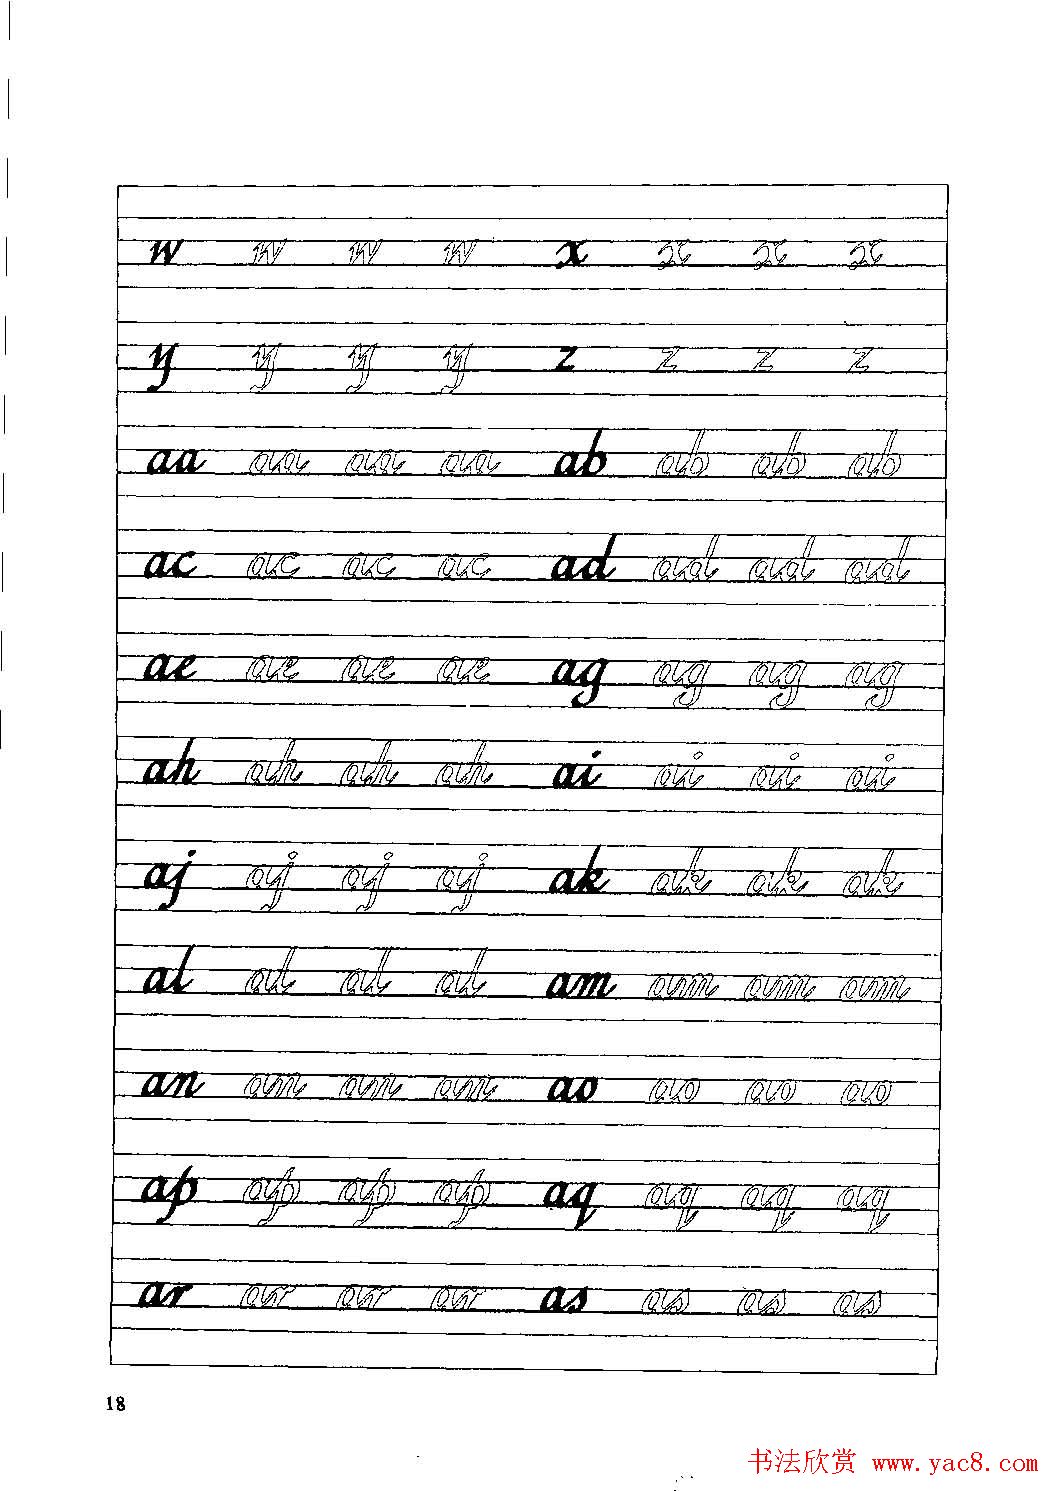 w w w w x x x x
y y y y z z z z
aa aa aa aa ab ab ab ab
ac ac ac ac ad ad ad ad
ae ae ae ae ag ag ag ag
ah ah ah ah ai ai ai ai
aj aj aj aj ak ak ak ak
al al al al am am am am
an an an an ao ao ao ao
ap ap ap ap aq aq aq aq
ar ar ar ar as as as as
18
书法欣赏 www.yac8.com